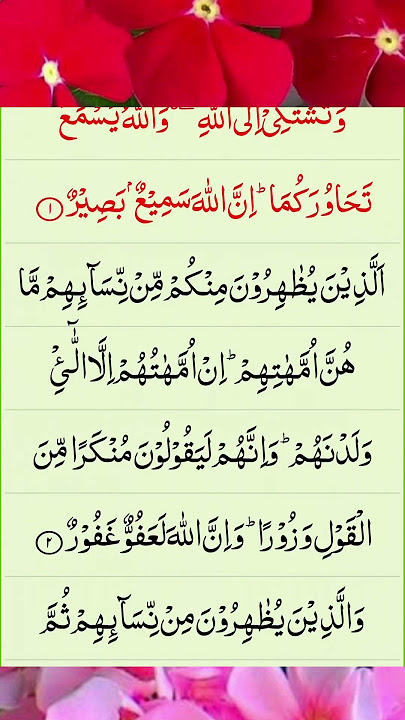 وَتَشْتَكِیْۤ اِلَی اللّٰهِ ۖۗ وَاللّٰهُ یَسْمَعُ
تَحَاوُرَكُمَا ؕ اِنَّ اللّٰهَ سَمِیْعٌۢ بَصِیْرٌ ۝۱
اَلَّذِیْنَ یُظٰهِرُوْنَ مِنْكُمْ مِّنْ نِّسَآىِٕهِمْ مَّا
هُنَّ اُمَّهٰتِهِمْ ؕ اِنْ اُمَّهٰتُهُمْ اِلَّا الّٰٓـِٔیْ
وَلَدْنَهُمْ ؕ وَاِنَّهُمْ لَیَقُوْلُوْنَ مُنْكَرًا مِّنَ
الْقَوْلِ وَزُوْرًا ؕ وَاِنَّ اللّٰهَ لَعَفُوٌّ غَفُوْرٌ ۝۲
وَالَّذِیْنَ یُظٰهِرُوْنَ مِنْ نِّسَآىِٕهِمْ ثُمَّ